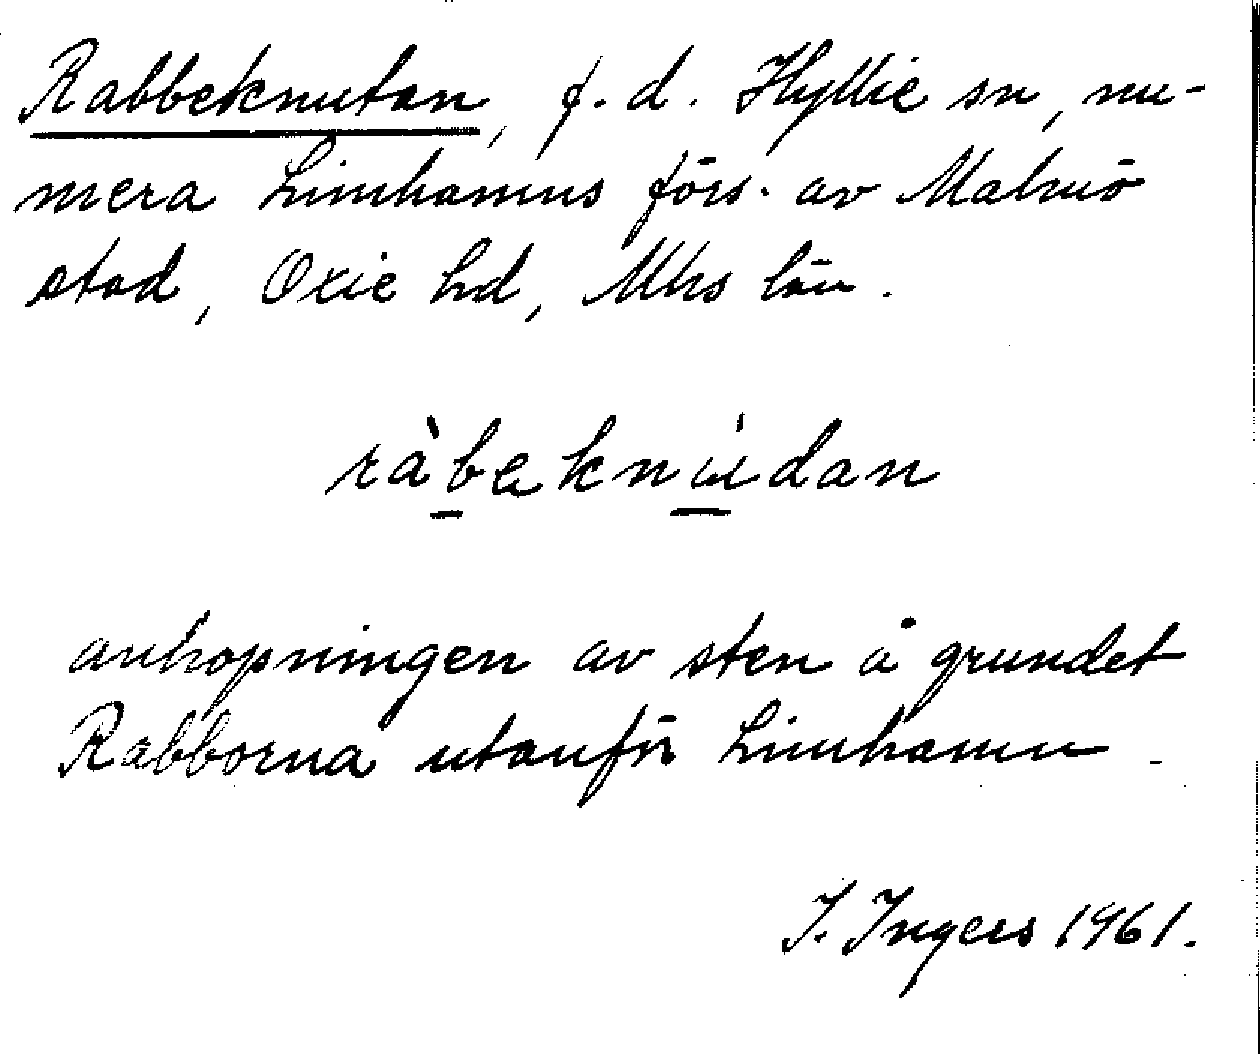 Rabbeknutan, f.d. Hyllie sn, nu-
mera Limhamns förs. av Malmö
stad, Oxie hd, Mhs län.
ràbeknúdan
anhopningen av sten å grundet
Rabborna utanför Limhamn.
I. Ingers 1961.